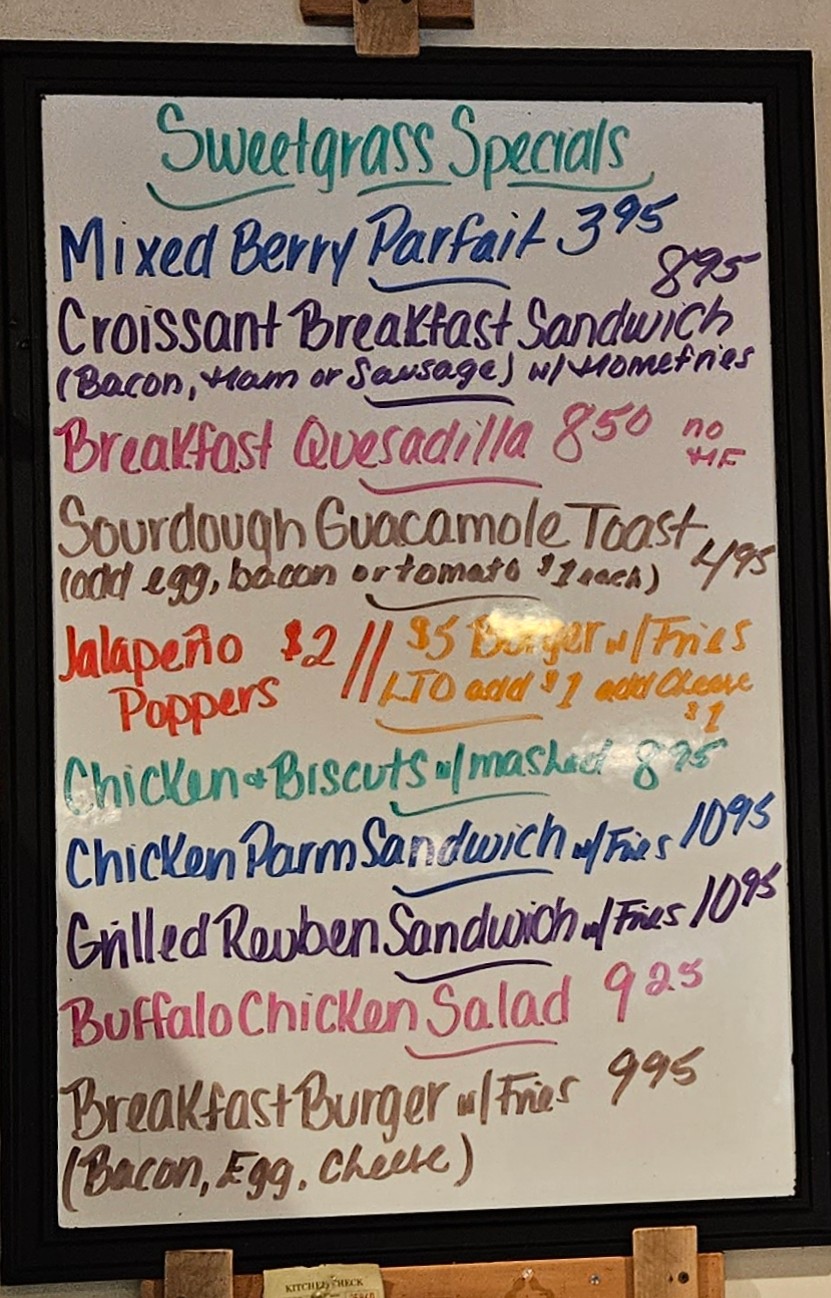 Sweetgrass Specials
Mixed Berry Parfait 395
895
Croissant Breakfast Sandwich
(Bacon, Ham or Sausage) w/ Homefries
Breakfast Quesadilla 850 no HF
Sourdough Guacamole Toast
(add egg, bacon or tomato $1 each) 495
Jalapeño $2 // $5 Burger w/ Fries
Poppers LTO add $1 add Cheese
$1
Chicken & Biscuts w/ mashed 895
Chicken Parm Sandwich w/ Fries 1095
Grilled Reuben Sandwich w/ Fries 1095
Buffalo Chicken Salad 925
Breakfast Burger w/ Fries 995
(Bacon, Egg, Cheese)
KITCHEN CHECK